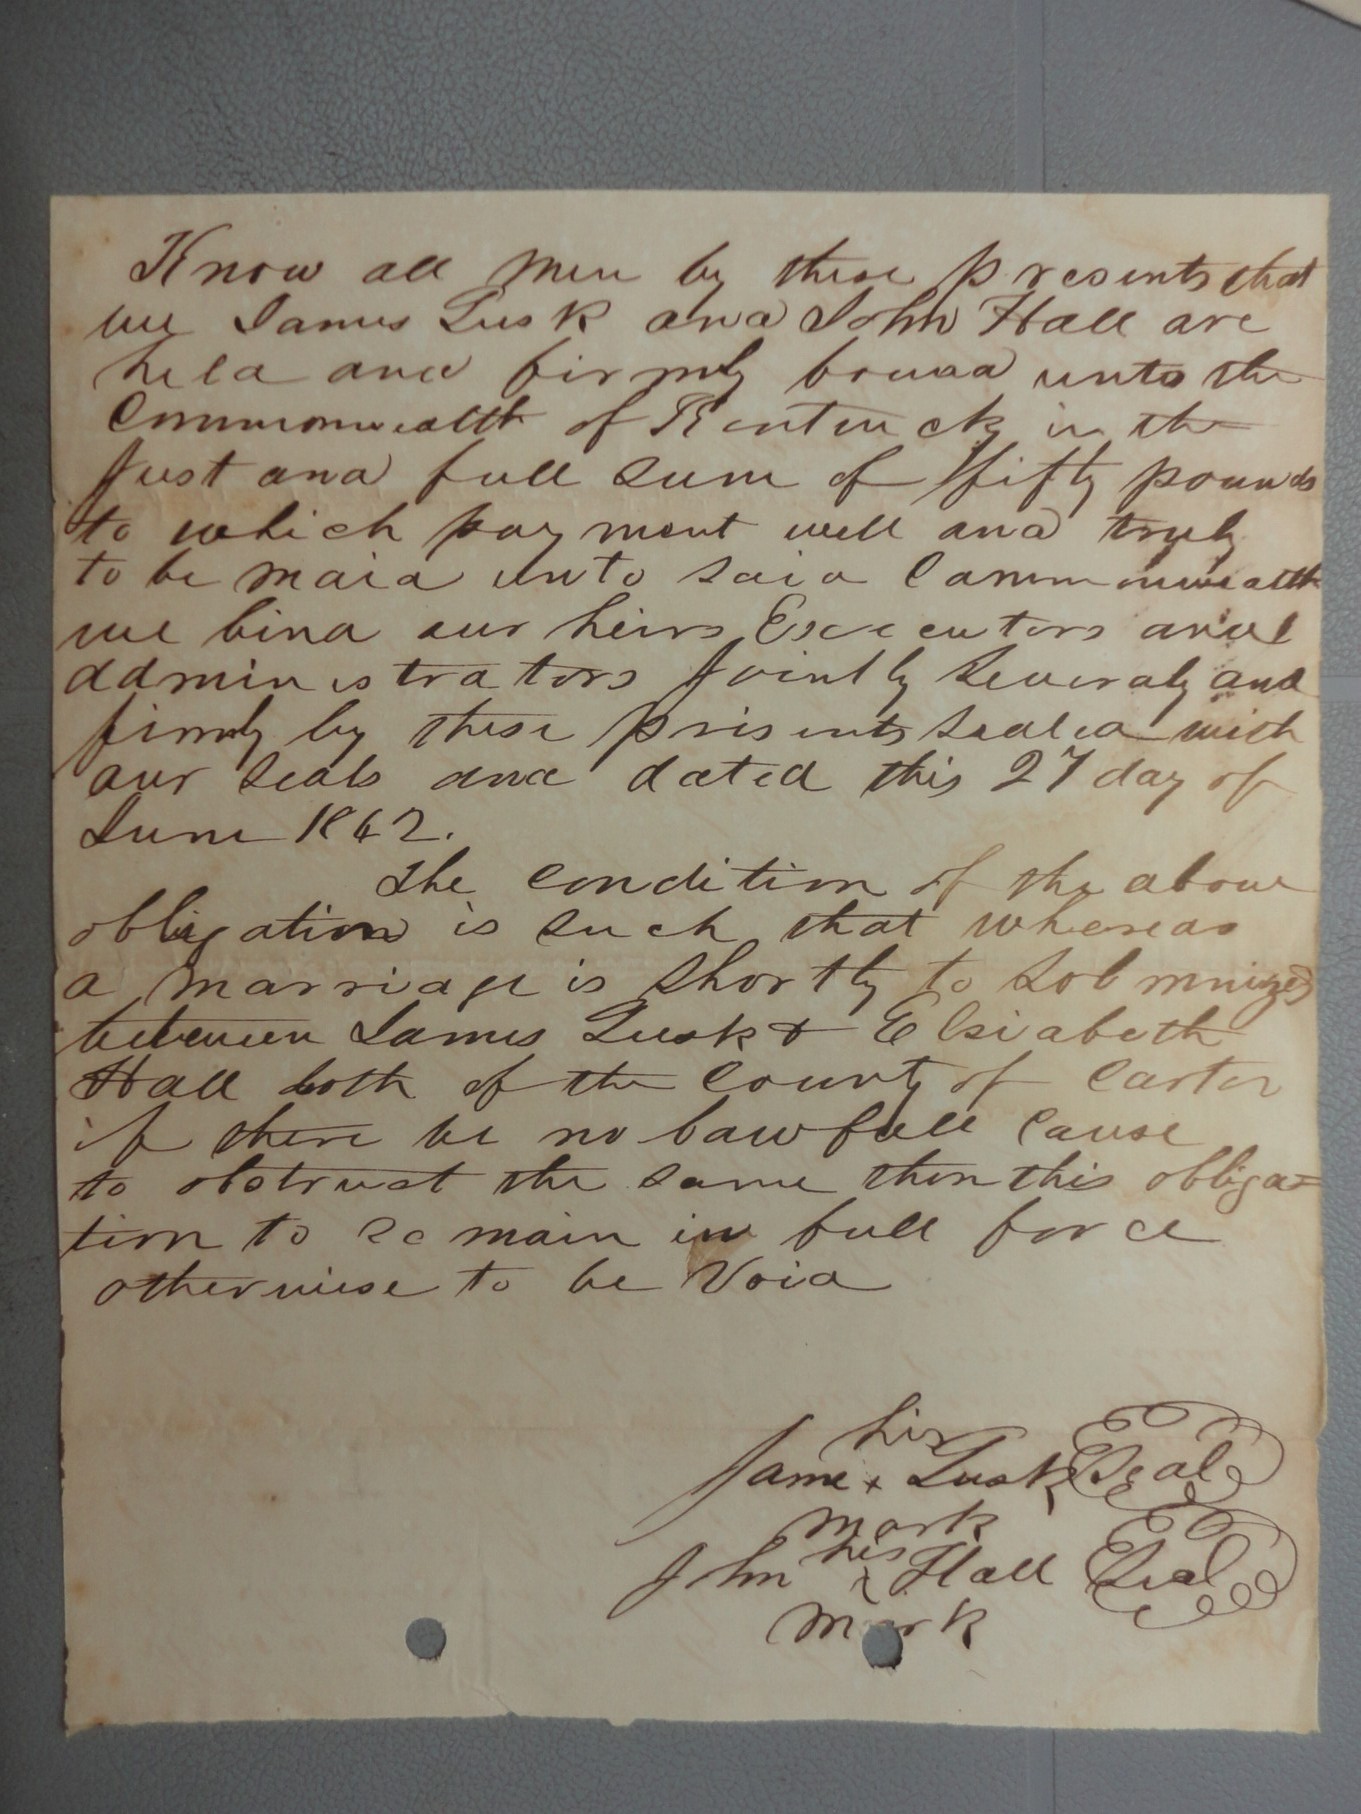 Know all men by these presents that
we James Lusk and John Hall are
held and firmly bound unto the
Commonwealth of Kentucky in the
Just and full sum of fifty pounds
to which payment well and truly
to be maid unto said Commonwealth
we bind our heirs Executors and
administrators Jointly Severaly and
firmly by these presents sealed with
our seals and dated this 27 day of
June 1862.
The condition of the above
obligation is such that whereas
a marriage is shortly to Solmnized
between James Lusk & Elsiabeth
Hall both of the county of Carter
if there be no lawfull cause
to obstruct the same then this obliga=
tion to remain in full force
otherwise to be Void
his
James x Lusk Seal
mark
his
John x Hall Seal
mark